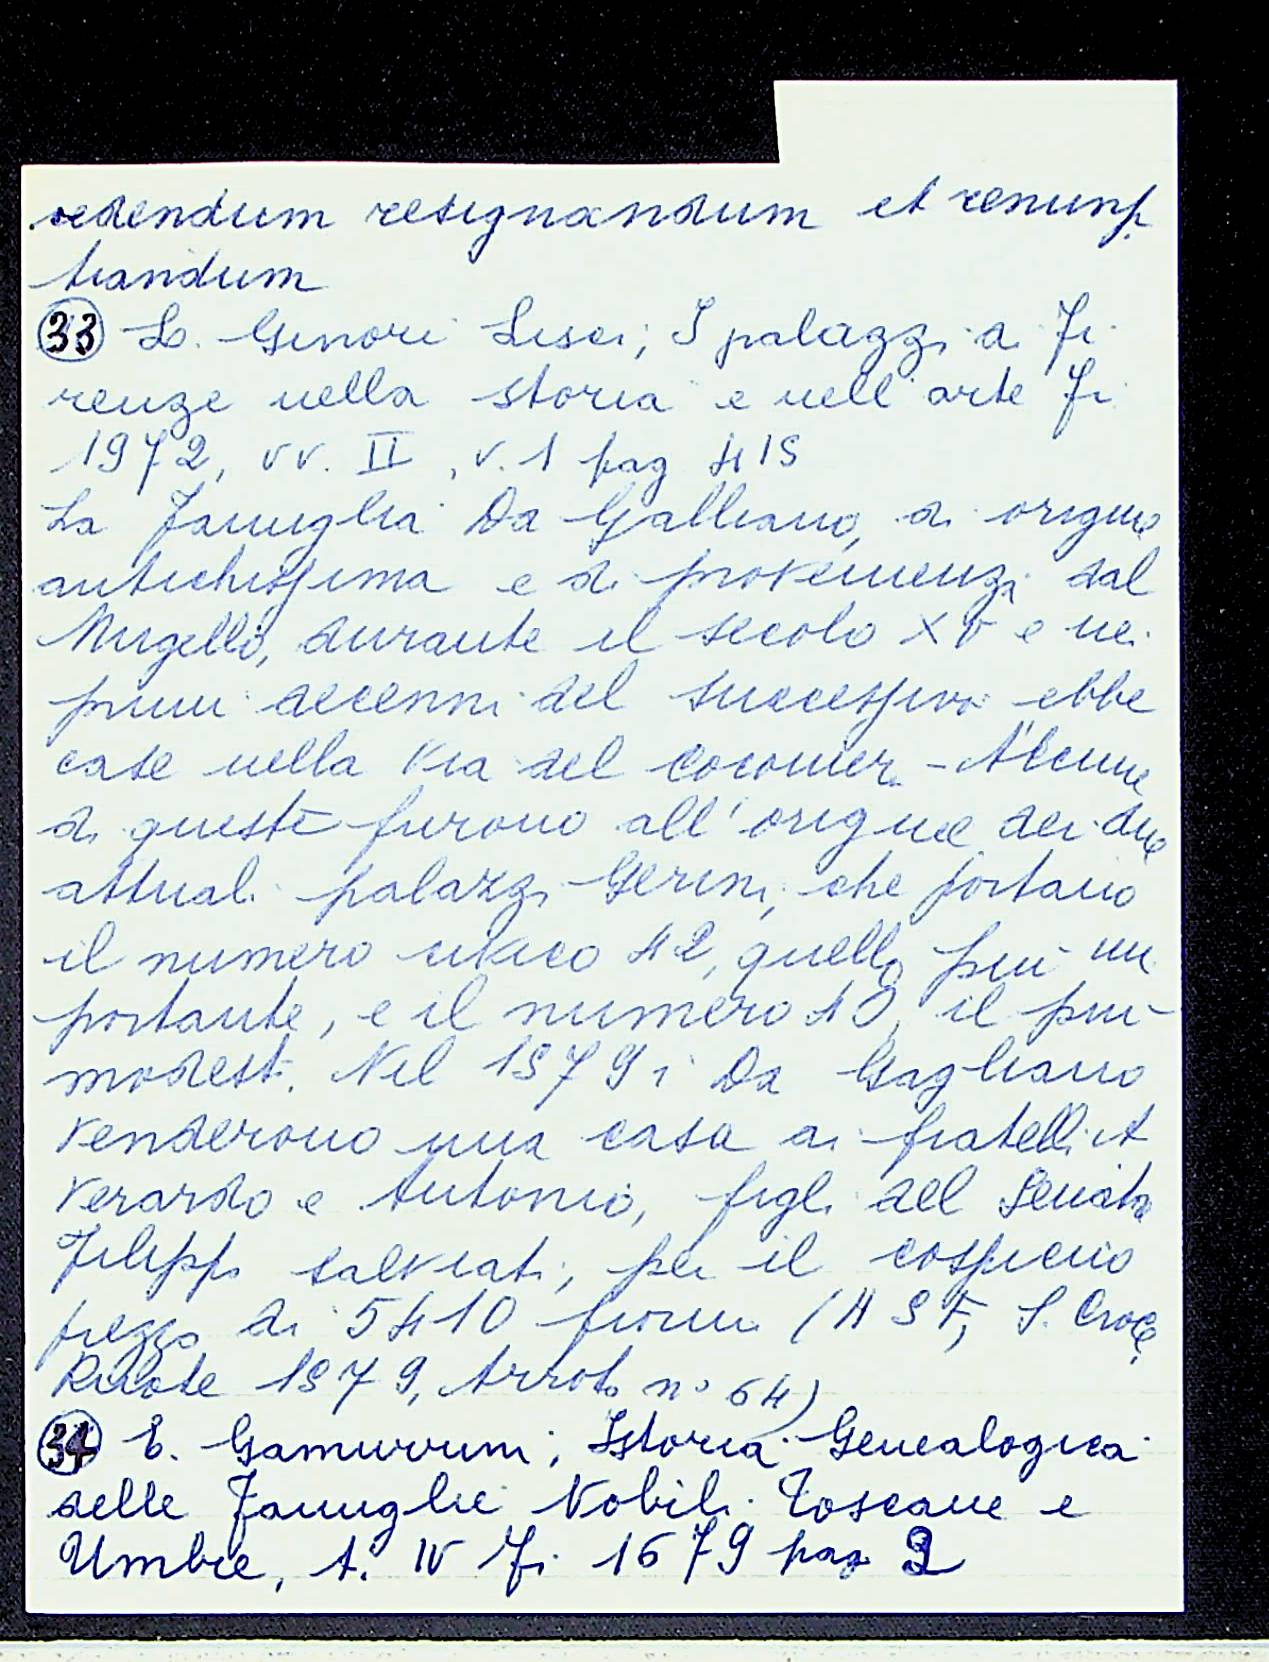 redendum resignandum et renunp
tiandum
33 L. Ginori Lisci, I palazzi di Fi
renze nella storia e nell'arte Fi
1972, vv. II, v. 1 pag 415
La famiglia Da Galliano, di origine
antichissima e di provenienza dal
Mugello, durante il secolo XV e nei
primi decenni del successivo ebbe
case nella Via del Cocomero - Alcune
di queste furono all'origine dei due
attuali palazzi Gerini, che portano
il numero civico 42, quello più im
portante, e il numero 40, il più
modesto. Nel 1579 i Da Gagliano
venderono una casa ai fratelli A
verardo e Antonio, figli del Senato
Filippo Salviati, per il cospicuo
prezzo di 5410 fiorini (A S F, S. Croce,
Ridote 1579, Arroto n° 64)
34 E. Gamurrini, Istoria Genealogica
delle Famiglie Nobili Toscane e
Umbre, t. IV Fi 1679 pag 2